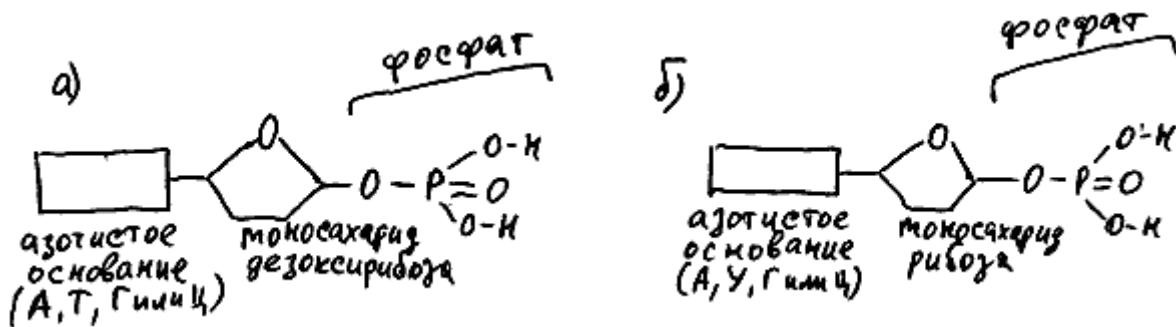 а)
фосфат
O
O-P=O
O-H
O-H
азотистое
основание
(А, Т, Г или Ц)
моносахарид
дезоксирибоза
б)
фосфат
O
O-P=O
O-H
O-H
азотистое
основание
(А, У, Г или Ц)
моносахарид
рибоза